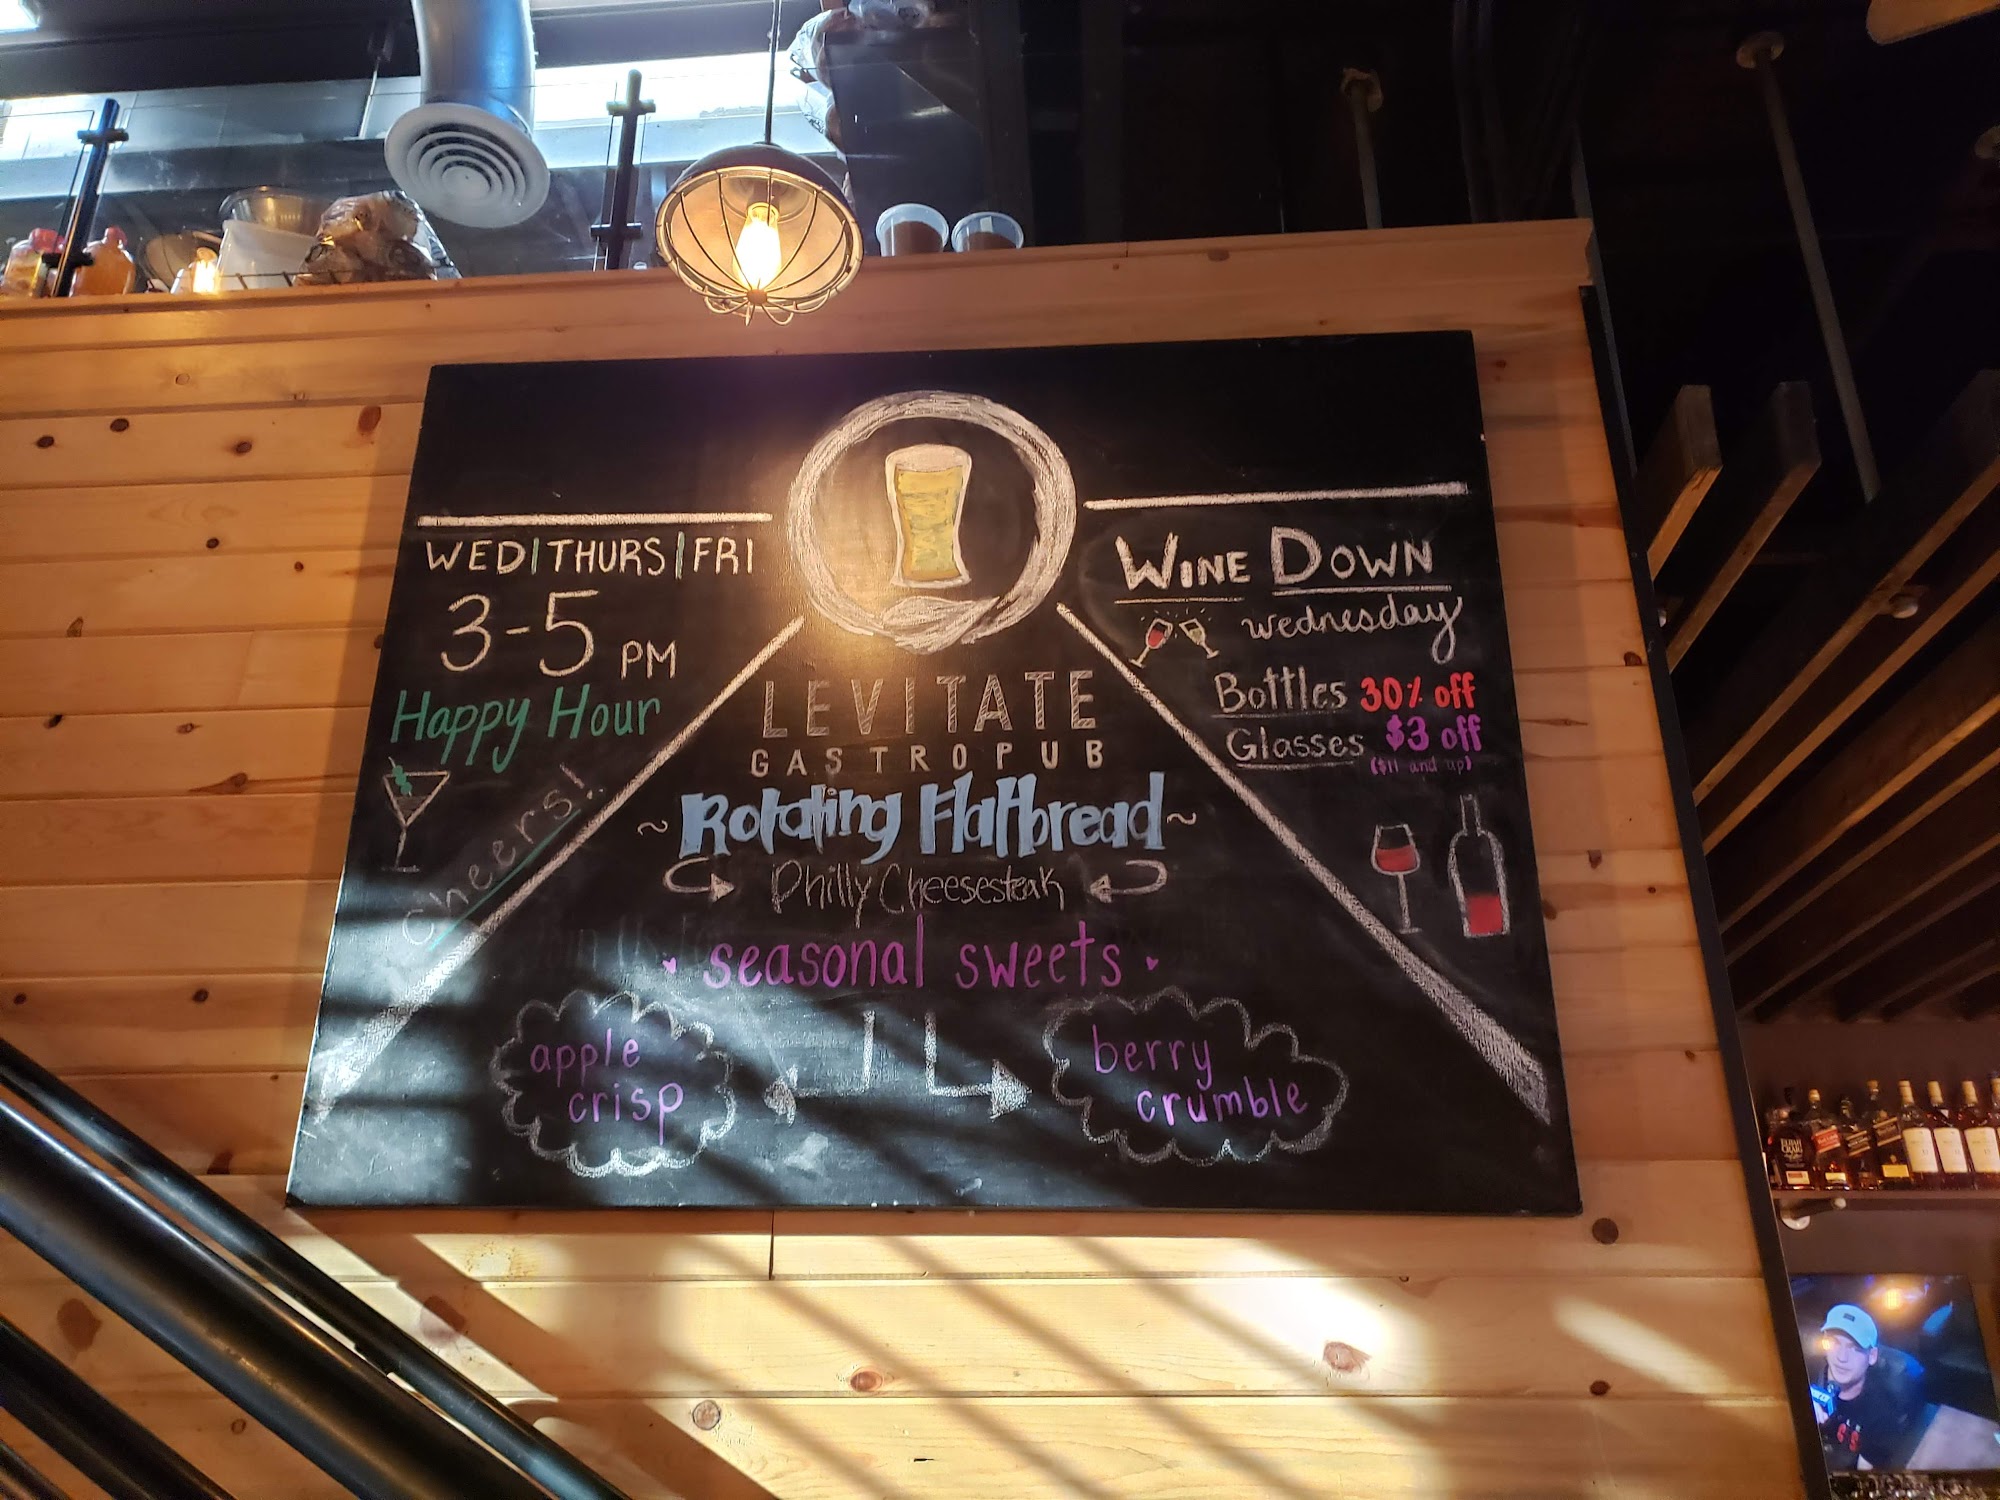 WED|THURS|FRI
3-5 PM
Happy Hour
Cheers!
LEVITATE
GASTROPUB
~Rotating Flatbread~
Philly Cheesesteak
seasonal sweets
apple
crisp
berry
crumble
WINE DOWN
wednesday
Bottles 30% off
Glasses $3 off
($11 and up)
ELIJAH
CRAIG